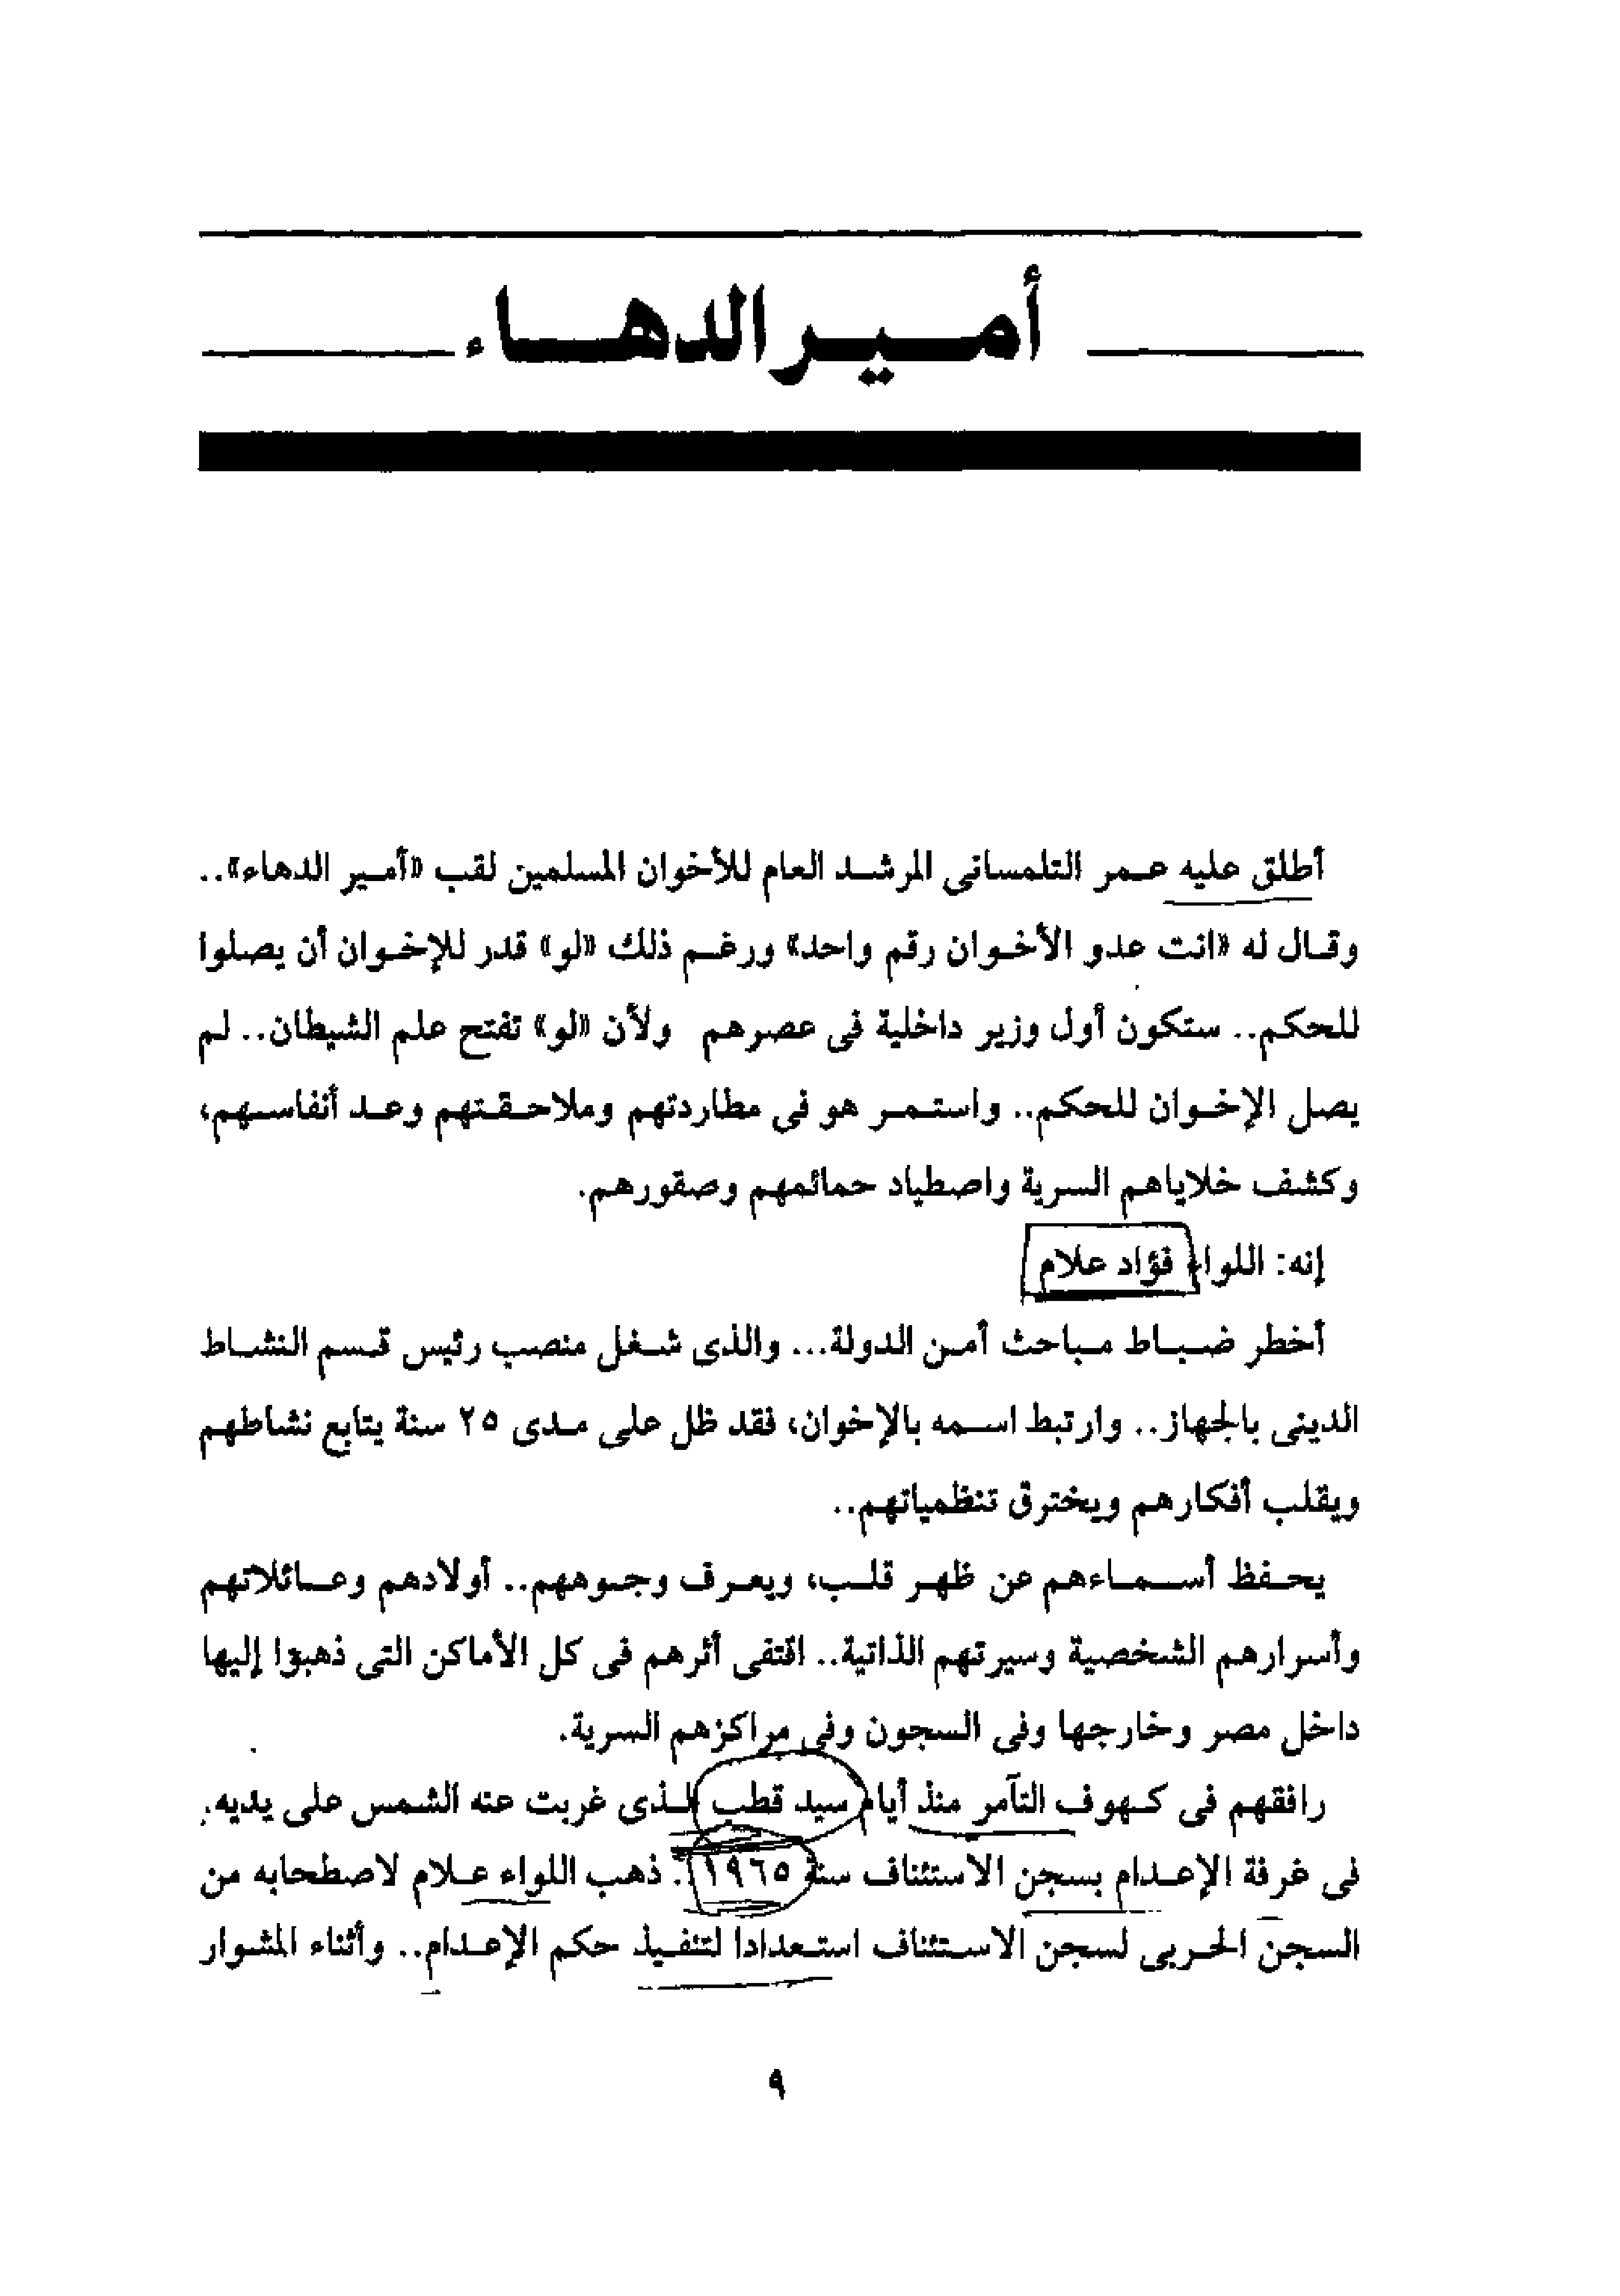 أمير الدهاء
أطلق عليه عمر التلمسانى المرشد العام للأخوان المسلمين لقب «أمير الدهاء»..
وقال له «انت عدو الأخوان رقم واحد» ورغم ذلك «لو» قدر للإخوان أن يصلوا
للحكم.. ستكون أول وزير داخلية فى عصرهم ولأن «لو» تفتح علم الشيطان.. لم
يصل الإخوان للحكم.. واستمر هو فى مطاردتهم وملاحقتهم وعد أنفاسهم،
وكشف خلاياهم السرية واصطياد حمائمهم وصقورهم.
إنه: اللواء فؤاد علام
أخطر ضباط مباحث أمن الدولة... والذى شغل منصب رئيس قسم النشاط
الدينى بالجهاز.. وارتبط اسمه بالإخوان، فقد ظل على مدى ٢٥ سنة يتابع نشاطهم
ويقلب أفكارهم ويخترق تنظمياتهم..
يحفظ أسماءهم عن ظهر قلب، ويعرف وجوههم.. أولادهم وعائلاتهم
وأسرارهم الشخصية وسيرتهم الذاتية.. اقتفى أثرهم فى كل الأماكن التى ذهبوا إليها
داخل مصر وخارجها وفى السجون وفى مراكزهم السرية.
رافقهم فى كهوف التآمر منذ أيام سيد قطب الذى غربت عنه الشمس على يديه.
فى غرفة الإعدام بسجن الاستئناف سنة ١٩٦٥. ذهب اللواء علام لاصطحابه من
السجن الحربى لسجن الاستئناف استعدادا لتنفيذ حكم الإعدام.. وأثناء المشوار
٩